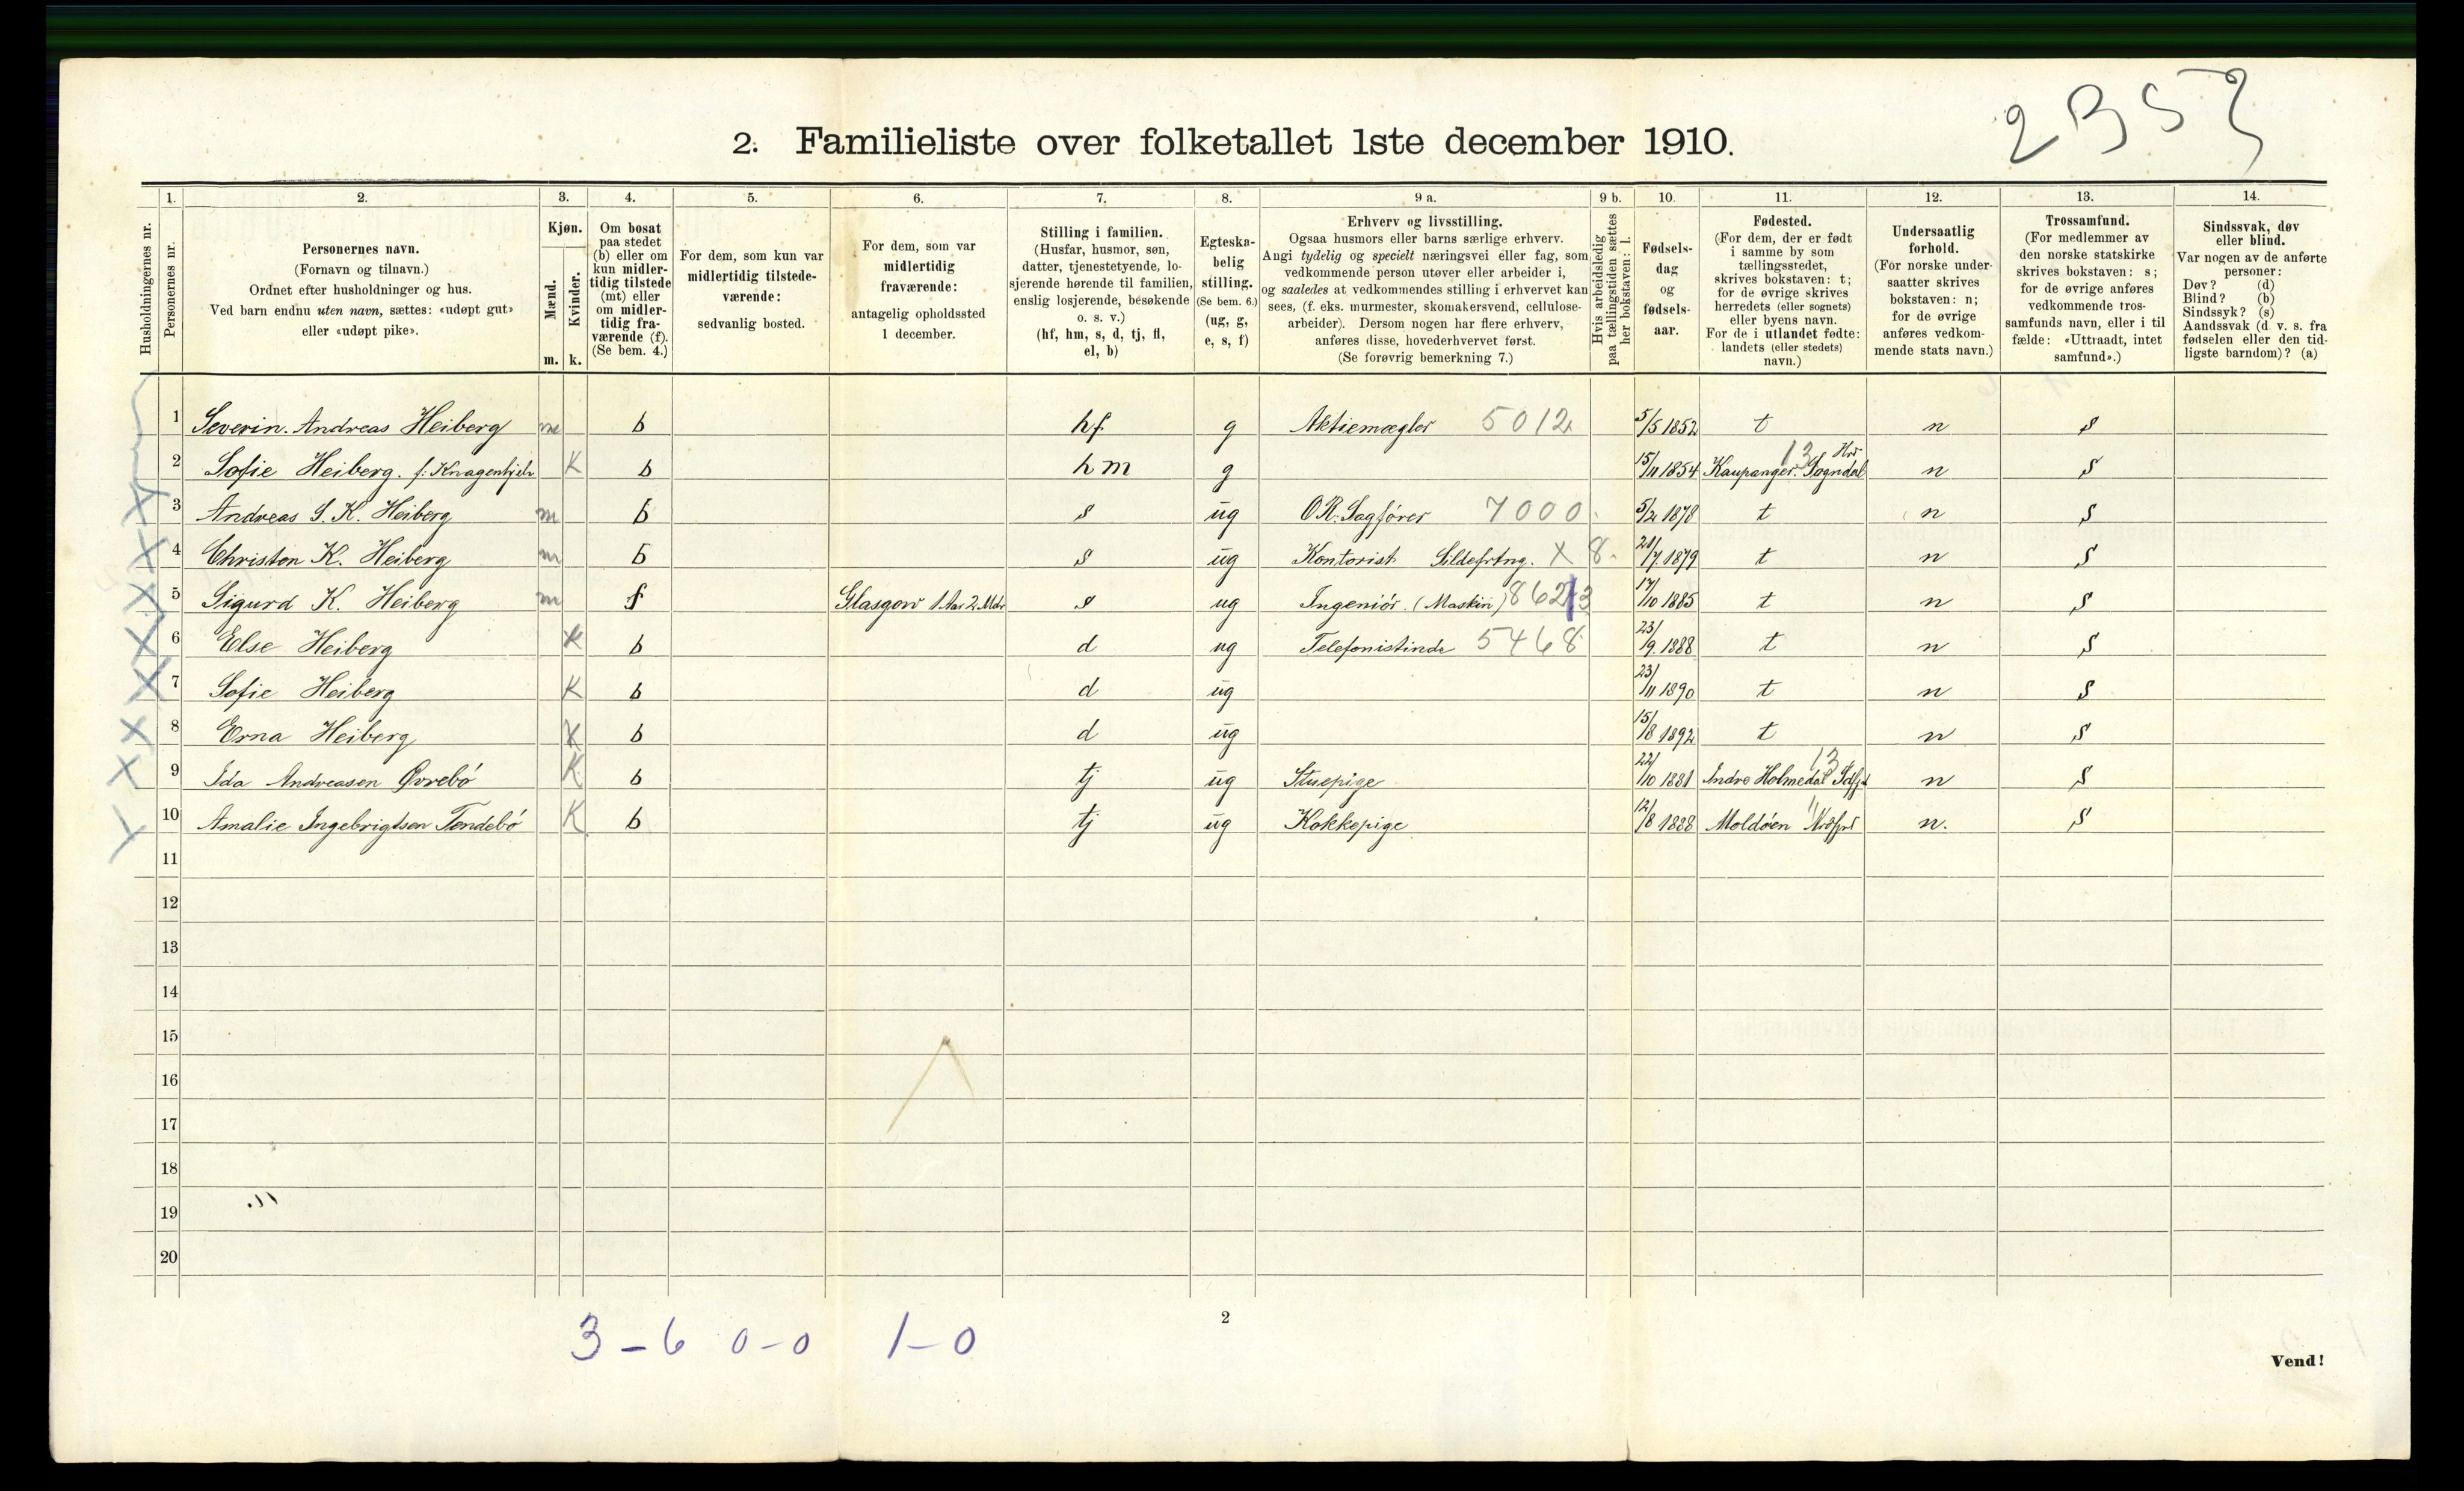 2353
2. Familieliste over folketallet 1ste december 1910.
1. 2. 3. 4. 5. 6. 7. 8. 9 a. 9 b. 10. 11. 12. 13. 14.
Husholdningernes nr.
Personernes nr.
Personernes navn.
(Fornavn og tilnavn.)
Ordnet efter husholdninger og hus.
Ved barn endnu uten navn, sættes: «udøpt gut»
eller «udøpt pike».
Kjøn.
Mænd.
Kvinder.
m. k.
Om bosat
paa stedet
(b) eller om
kun midler-
tidig tilstede
(mt) eller
om midler-
tidig fra-
værende (f).
(Se bem. 4.)
For dem, som kun var
midlertidig tilstede-
værende:
sedvanlig bosted.
For dem, som var
midlertidig
fraværende:
antagelig opholdssted
1 december.
Stilling i familien.
(Husfar, husmor, søn,
datter, tjenestetyende, lo-
sjerende hørende til familien,
enslig losjerende, besøkende
o. s. v.)
(hf, hm, s, d, tj, fl,
el, b)
Egteska-
belig
stilling.
(Se bem. 6.)
(ug, g,
e, s, f)
Erhverv og livsstilling.
Ogsaa husmors eller barns særlige erhverv.
Angi tydelig og specielt næringsvei eller fag, som
vedkommende person utøver eller arbeider i,
og saaledes at vedkommendes stilling i erhvervet kan
sees, (f. eks. murmester, skomakersvend, cellulose-
arbeider). Dersom nogen har flere erhverv,
anføres disse, hovederhvervet først.
(Se forøvrig bemerkning 7.)
Hvis arbeidsledig
paa tællingstiden sættes
her bokstaven: l.
Fødsels-
dag
og
fødsels-
aar.
Fødested.
(For dem, der er født
i samme by som
tællingsstedet,
skrives bokstaven: t;
for de øvrige skrives
herredets (eller sognets)
eller byens navn.
For de i utlandet fødte:
landets (eller stedets)
navn.)
Undersaatlig
forhold.
(For norske under-
saatter skrives
bokstaven: n;
for de øvrige
anføres vedkom-
mende stats navn.)
Trossamfund.
(For medlemmer av
den norske statskirke
skrives bokstaven: s;
for de øvrige anføres
vedkommende tros-
samfunds navn, eller i til
fælde: «Uttraadt, intet
samfund».)
Sindssvak, døv
eller blind.
Var nogen av de anførte
personer:
Døv? (d)
Blind? (b)
Sindssyk? (s)
Aandssvak (d. v. s. fra
fødselen eller den tid-
ligste barndom)? (a)
1 Severin Andreas Heiberg m b hf g Aktiemægler 5012 5/5 1852 t n s
2 Sofie Heiberg. f: Knagenhjelm K b hm g 15/11 1854 Kaupanger. Sogndal 13 n s
3 Andreas S. K. Heiberg m b s ug O.R. Sagfører 7000 5/2 1878 t n s
4 Christen K. Heiberg m b s ug Kontorist Sildefrtng. X 8. 21/7 1879 t n s
5 Sigurd K. Heiberg m f Glasgow 1 Aar 2 Mdr s ug Ingeniør. (Maskin) 17/10 1885 t n s
6 Else Heiberg K b d ug Telefonistinde 5468 23/9. 1888 t n s
7 Sofie Heiberg K b d ug 23/11 1890 t n s
8 Erna Heiberg K b d ug 15/8 1892 t n s
9 Ida Andreasen Øvrebø K b tj ug Stuepige 22/10 1881 Indre Holmedal 13 n s
10 Amalie Ingebrigtsen Tendebø K b tj ug Kokkepige 12/8 1888 Moldøen n. s
11
12
13
14
15
16
17
18
19
20
3-6 0-0 1-0
2
Vend!